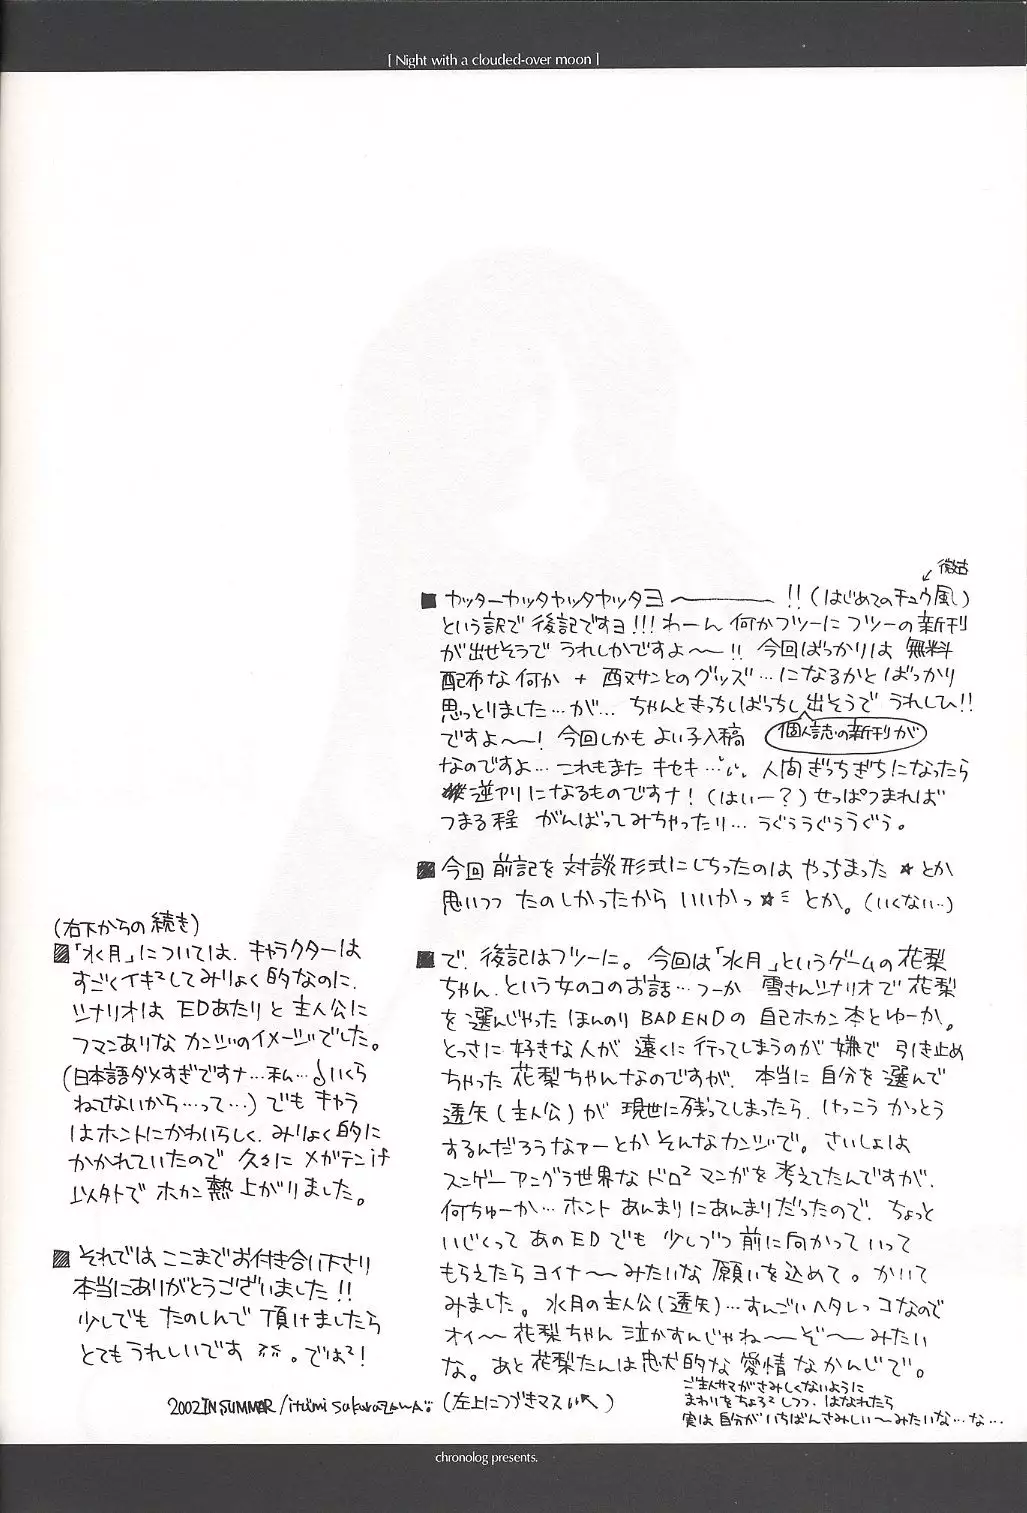 [ Night with a clouded-over moon ]
微古
■ ヤッターヤッタヤッタヤッタヨ〜!!(はじめてのチュウ風)
という訳で後記ですヨ!!!わーん何かフツーにフツーの新刊
が出せそうでうれしかですよ〜!!今回ばっかりは無料
配布な何か+酉又サンとのグッズ…になるかとばっかり
思っとりました…が…ちゃんときっちしばっちし出そうでうれしひ!!
個人誌の新刊が
ですよ〜!今回しかもよい子入稿
なのですよ…これもまたキセキ…。人間ぎっちぎちになったら
逆アリになるものですナ!(はいー?)せっぱつまれば
つまる程がんばってみちゃったり…うぐぅうぐぅうぐぅ。
■今回前記を対談形式にしちったのはやっちまった☆とか
思いつつたのしかったからいいかっ☆ミとか。(いくない…)
■で、後記はフツーに。今回は「水月」というゲームの花梨
ちゃん、という女のコのお話…つーか雪さんシナリオで花梨
を選んじゃったほんのりBAD ENDの自己ホカン本とゆーか。
とっさに好きな人が遠くに行ってしまうのが嫌で引き止め
ちゃった花梨ちゃんなのですが、本当に自分を選んで
透矢(主人公)が現世に残ってしまったら、けっこうかっとう
するんだろうなァーとかそんなカンジで。さいしょは
スンゲーアングラ世界なドロ²マンガを考えてたんですが、
何ちゅーか…ホントあんまりにあんまりだったので、ちょっと
いじくってあのEDでも少しづつ前に向かっていって
もらえたらヨイナ〜みたいな願いを込めて。かいて
みました。水月の主人公(透矢)…すんごいヘタレっコなので
オイ〜花梨ちゃん泣かすんじゃね〜ぞ〜みたい
な。あと花梨たんは忠犬的な愛情なかんじで。
ご主人サマがさみしくないように
まわりをちょろ²しつつ、はなれたら
実は自分がいちばんさみしい〜みたいな…な…
(左上につづきマス)
(右下からの続き)
■「水月」については、キャラクターは
すごくイキ²してみりょく的なのに、
シナリオはEDあたりと主人公に
フマンありなカンジのイメージでした。
(日本語ダメすぎですナ…私…いくら
ねてないから…って…)でもキャラ
はホントにかわいらしく、みりょく的に
かかれていたので久々にメガテン
以外でホカン熱上がりました。
■それではここまでお付き合い下さり
本当にありがとうございました!!
少しでもたのしんで頂けましたら
とてもうれしいです。では²!
2002 IN SUMMER/itsumi sakurazawa
chronolog presents.